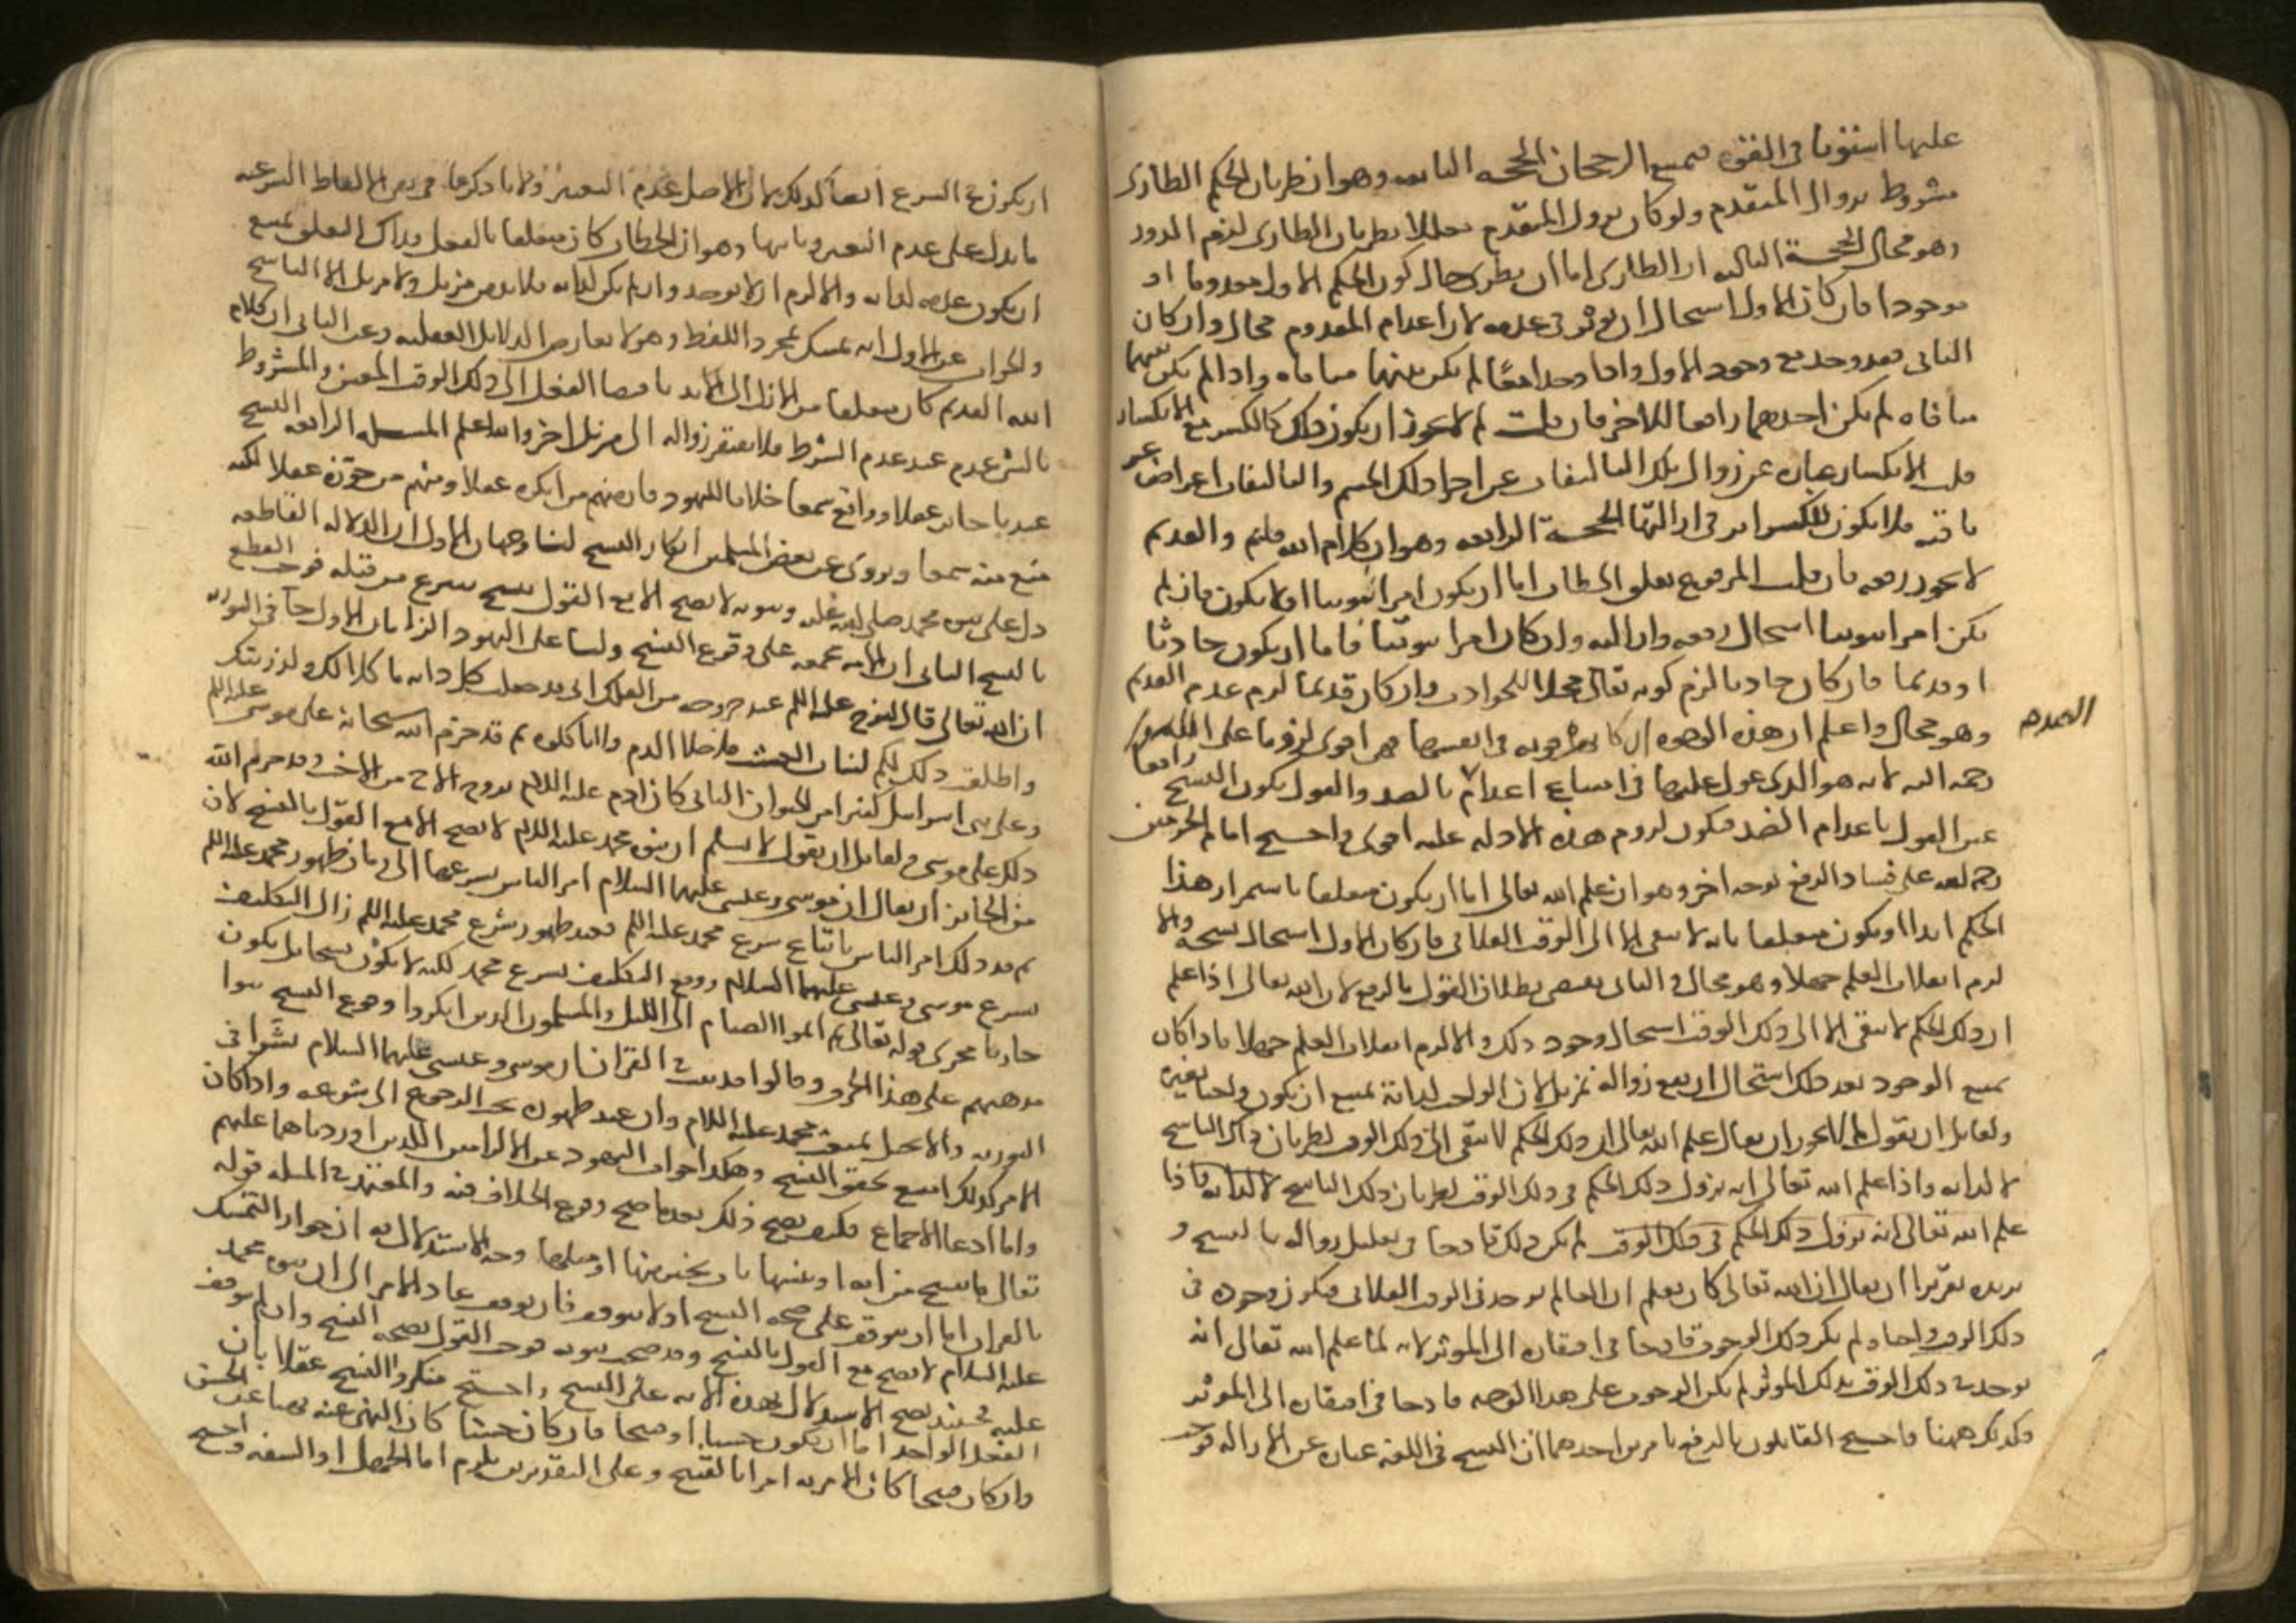 عليها استويا في القوة فيمتنع الرجحان الحجة الثانية وهو ان طريان الحكم الطارى
مشروط بزوال المتقدم ولو كان زوال المتقدم معللا بطريان الطارى لزم الدور
وهو محال الحجة الثالثة ان الطارى اما ان يطرى حال كون الحكم الاول معدوما او
موجودا فان كان الاول استحال ان يؤثر في عدمه لان اعدام المعدوم محال وان كان
الثاني فقد وجد مع وجود الاول واذا وجدا معا لم يكن بينهما منافاة واذا لم يكن بينهما
منافاة لم يكن احدهما رافعا للاخر فان قلت لم لا يجوز ان يكون ذلك كالكسر مع الانكسار
قلت الانكسار عبارة عن زوال تلك التاليفات عن اجزا ذلك الجسم والتاليفات اعراض غير
باقية فلا يكون للكسر اثر في ازالتها الحجة الرابعة وهو ان كلام الله قديم والقديم
لا يجوز رفعه فان قلت المرفوع تعلق الخطاب اما ان يكون امرا ثبوتيا او لا يكون فان لم
يكن امرا ثبوتيا استحال رفعه وازالته وان كان امرا ثبوتيا فاما ان يكون حادثا
او قديما فان كان حادثا لزم كونه تعالى محلا للحوادث وان كان قديما لزم عدم القديم
وهو محال واعلم ان هذه الوجوه ان كانت في انفسها فهي اقوى لزوما على القاضى
رحمه الله لانه هو الذى عول عليها في امتناع اعدام بالضد والقول بكون النسخ رافعا
عين القول باعدام الضد فيكون لزوم هذه الادلة عليه اقوى واحتج امام الحرمين
رحمه الله على فساد الرفع بوجه اخر وهو ان علم الله تعالى اما ان يكون متعلقا باستمرار هذا
الحكم ابدا او يكون متعلقا بانه لا يبقى الا الى الوقت الفلاني فان كان الاول استحال نسخه والا
لزم انقلاب العلم جهلا وهو محال والثاني يقتضي بطلان القول بالرفع لان الله تعالى اذا علم
ان ذلك الحكم لا يبقى الا الى ذلك الوقت استحال وجود ذلك والا لزم انقلاب العلم جهلا فاذا كان
ممتنع الوجود بعد ذلك استحال ان يقع زواله بمزيل لان الواجب لذاته يمتنع ان يكون واجبا بغيره
ولقائل ان يقول لم لا يجوز ان يقال علم الله تعالى ان ذلك الحكم لا يبقى الى ذلك الوقت لطريان ذلك الناسخ
لا لذاته واذا علم الله تعالى انه يزول ذلك الحكم في ذلك الوقت لطريان ذلك الناسخ لا لذاته فاذا
علم الله تعالى انه يزول ذلك الحكم في ذلك الوقت لم يكن ذلك قادحا في تعليل زواله بالنسخ و
يريده تقريرا ان يقال ان الله تعالى كان يعلم ان العالم يوجد في الوقت الفلاني فيكون وجوده في
ذلك الوقت واجبا ولم يكن ذلك الوجوب قادحا في افتقاره الى المؤثر لانه لما علم الله تعالى انه
يوجد في ذلك الوقت بذلك المؤثر لم يكن الوجوب على هذا الوجه قادحا في افتقاره الى المؤثر
وكذلك ههنا واحتج القايلون بالرفع بامرين احدهما ان النسخ في اللغة عبارة عن الازالة فوجب
القديم
ان يكون في الشرع ايضا كذلك لان الاصل عدم التغيير ولانا ذكرنا في الالفاظ الشرعية
ما يدل على عدم التغيير وثانيها وهو ان الخطاب كان متعلقا بالفعل وذاك التعلق يمتنع
ان يكون عدمه لذاته والا لزم ان لا يوجد وان لم يكن لذاته فلا بد من مزيل ولا مزيل الا الناسخ
والجواب عن الاول انه تمسك بمجرد اللفظ وهو لا يعارض الدلايل العقلية وعن الثاني ان كلام
الله القديم كان متعلقا من الازل الى الابد باقتضا الفعل الى ذلك الوقت المعين والمشروط
بالشرط عدم عند عدم الشرط فلا يفتقر زواله الى مزيل اخر والله اعلم المسئلة الرابعة النسخ
عندنا جائز عقلا وواقع سمعا خلافا لليهود فان منهم من انكره عقلا ومنهم من جوزه عقلا لكنه
منع منه سمعا ويروى عن بعض المسلمين انكار النسخ لنا وجهان الاول ان الدلالة القاطعة
دل على نبوة محمد صلى الله عليه ونبوته لا يصح الا مع القول بنسخ شرع من قبله فوجب القطع
بالنسخ الثاني ان الامة مجمعة على وقوع النسخ ولنا على اليهود الزامان الاول جاء في التوراة
ان الله تعالى قال لنوح عليه السلم عند خروجه من الفلك اني قد جعلت كل دابة ماكلا لك ولذريتك
واطلقت ذلك لكم كنبات العشب ما خلا الدم فلا تاكلوه ثم قد حرم الله سبحانه على موسى عليه السلم
وعلى بني اسرائيل كثيرا من الحيوان الثاني كان ادم عليه السلام يزوج الاخ من الاخت وقد حرم الله
ذلك على موسى ولقائل ان يقول لا نسلم ان نبوة محمد عليه السلام لا تصح الا مع القول بالنسخ لان
من الجائز ان يقال ان موسى وعيسى عليهما السلام امر الناس بشرعهما الى زمان ظهور محمد عليه السلم
ثم بعد ذلك امر الناس باتباع شرع محمد عليه السلم فعند ظهور شرع محمد عليه السلم زال التكليف
بشرع موسى وعيسى عليهما السلام ووقع التكليف بشرع محمد لكنه لا يكون نسخا بل يكون
جاريا مجرى قوله تعالى ثم اتموا الصيام الى الليل والمسلمون الذين انكروا وقوع النسخ بنوا
مذهبهم على هذا الحرف وقالوا قد ثبت في القران ان موسى وعيسى عليهما السلام بشرا في
التورية والانجيل بمبعث محمد عليه السلام وان عند ظهوره يجب الرجوع الى شرعه واذا كان
الامر كذلك امتنع تحقق النسخ وهكذا جواب اليهود عن الالزامين اللذين اوردناهما عليهم
واما ادعا الاجماع فكيف يصح ذلك بعد ما صح وقوع الخلاف فيه والمعتمد في المسلة قوله
تعالى ما ننسخ من اية او ننسها نات بخير منها او مثلها وجه الاستدلال به ان جواز التمسك
بالقران اما ان يتوقف على صحة النسخ او لا يتوقف فان توقف عاد الامر الى ان نبوة محمد
عليه السلام لا تصح مع القول بالنسخ وقد صحت نبوته فوجب القول بصحة النسخ وان لم يتوقف
عليه فحينئذ يصح الاستدلال بهذه الاية على النسخ واحتج منكروا النسخ عقلا بان
الفعل الواحد اما ان يكون حسنا او قبيحا فان كان حسنا كان النهي عنه نهيا عن الحسن
وان كان قبيحا كان الامر به امرا بالقبيح وعلى التقديرين يلزم اما الجهل او السفه واحتج